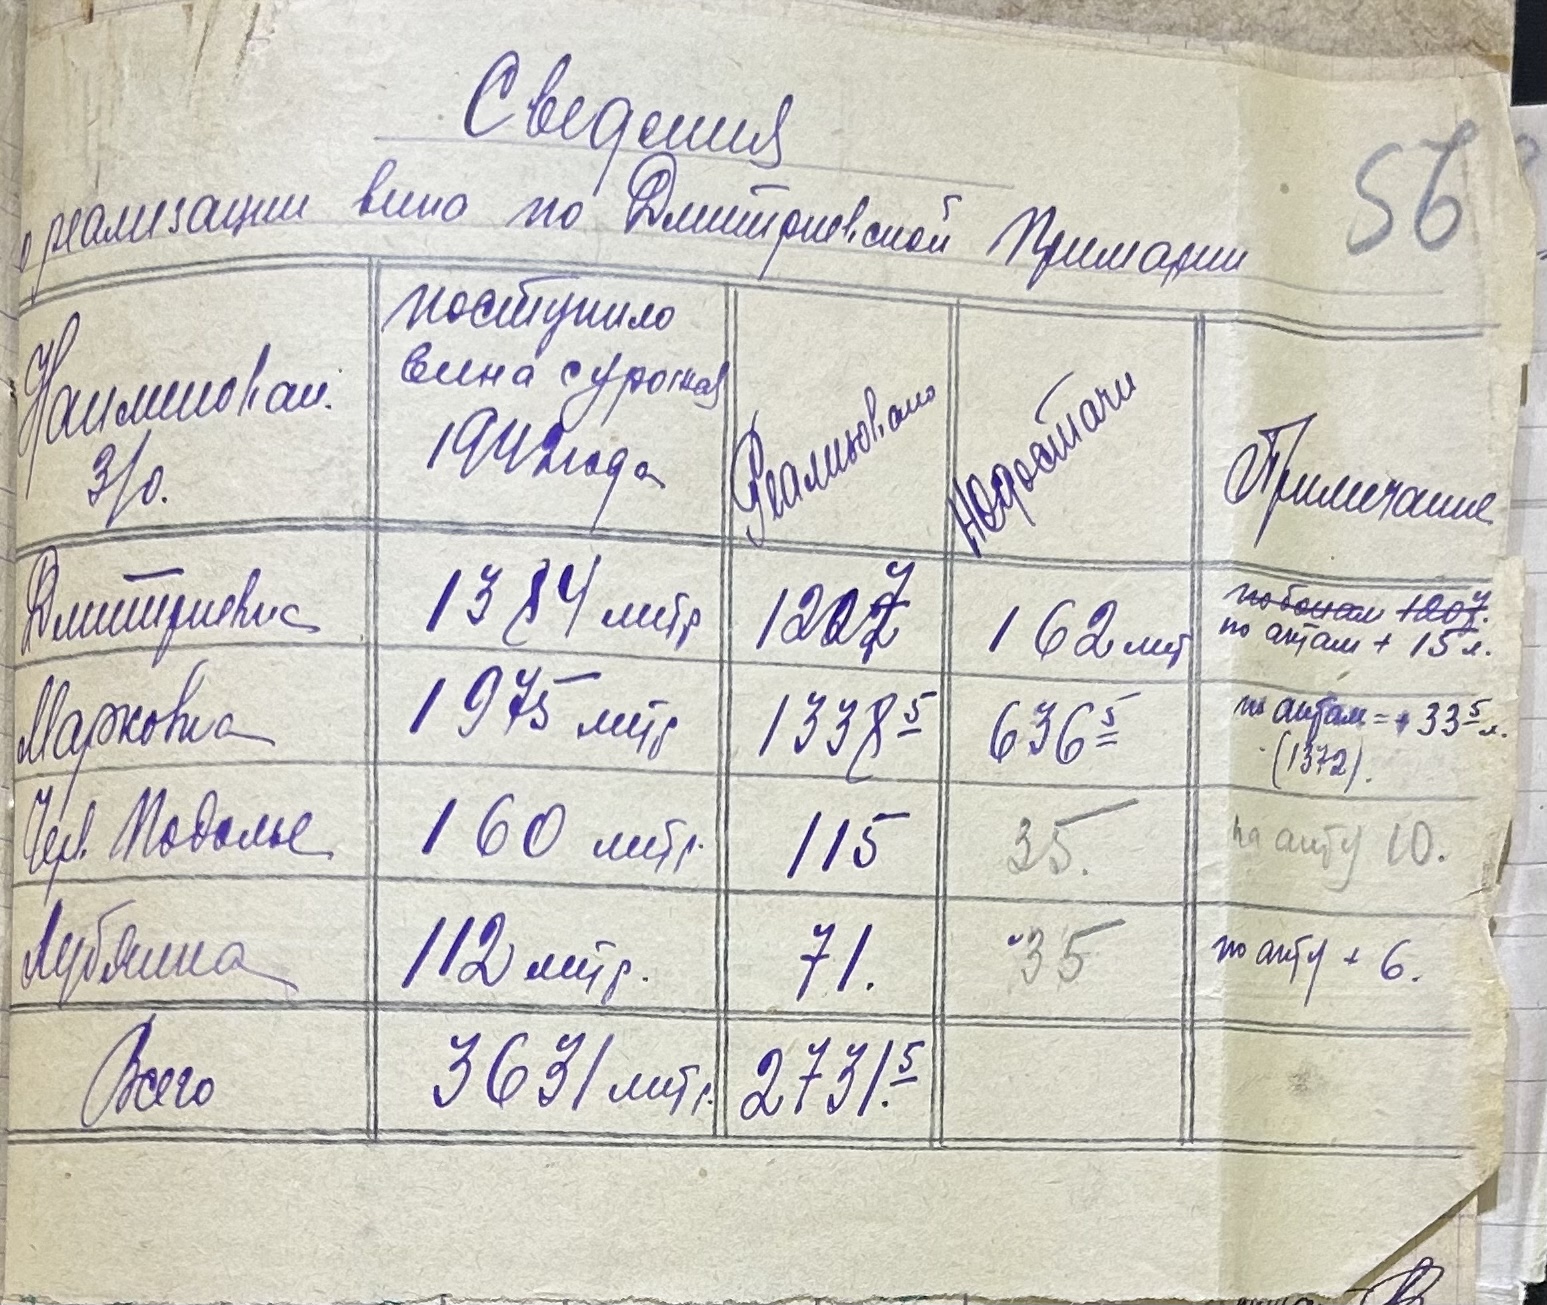 Сведения
56
о реализации вина по Дмитриевской Примарии
Наименован. з/о.
поступило вина с урожая 1942 года
Реализовано
Недостачи
Примечание
Дмитриевка 1384 литр 1207 162 лит по бонам 1207. по актам + 15 л.
Марковка 1975 литр 1338 5 636 5 по актам = + 33 5 л. (1372).
Черв. Подолье 160 литр. 115 35. по акту 10.
Лубянка 112 литр. 71. 35 по акту + 6.
Всего 3631 литр. 2731. 5